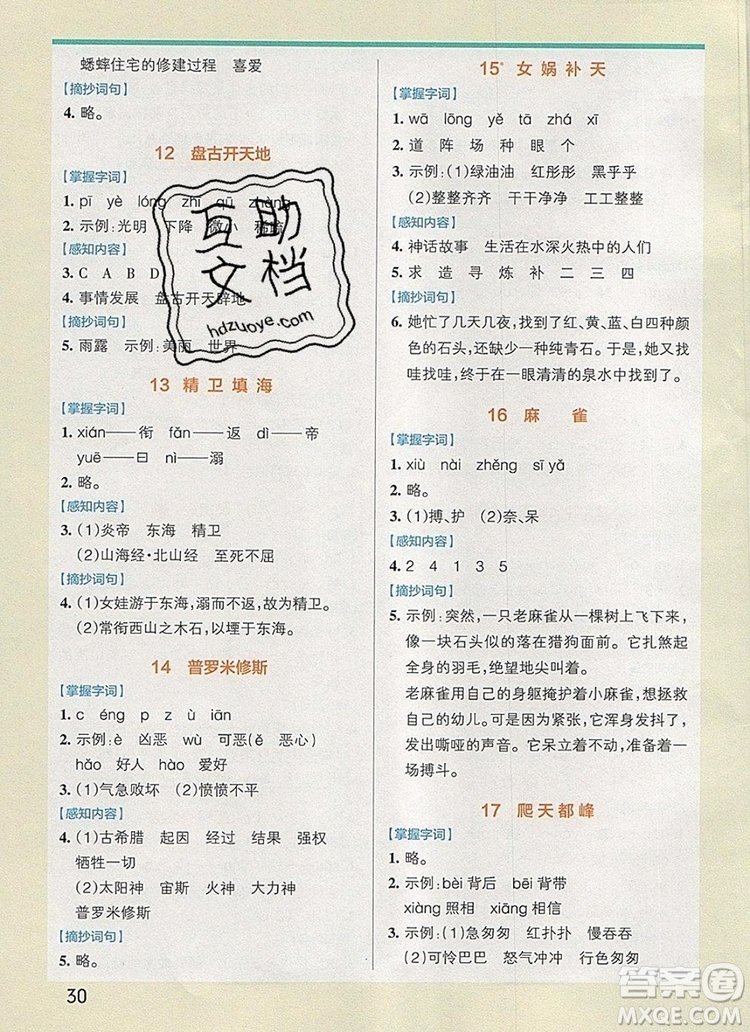 蟋蟀住宅的修建过程 喜爱
【摘抄词句】
4. 略。
12 盘古开天地
【掌握字词】
1. pī yè lóng zhī qū zhàng
2. 示例:光明 下降 微小 稀
【感知内容】
3. C A B D
4. 事情发展 盘古开天辟地
【摘抄词句】
5. 雨露 示例:美丽 世界
13 精卫填海
【掌握字词】
1. xián——衔 fǎn——返 dì——帝
yuē——曰 nì——溺
2. 略。
【感知内容】
3. (1)炎帝 东海 精卫
(2)山海经·北山经 至死不屈
【摘抄词句】
4. (1)女娃游于东海,溺而不返,故为精卫。
(2)常衔西山之木石,以堙于东海。
14 普罗米修斯
【掌握字词】
1. c éng p z ù iān
2. 示例:è 凶恶 wù 可恶(ě 恶心)
hǎo 好人 hào 爱好
3. (1)气急败坏 (2)愤愤不平
【感知内容】
4. (1)古希腊 起因 经过 结果 强权
牺牲一切
(2)太阳神 宙斯 火神 大力神
普罗米修斯
【摘抄词句】
5. 略。
30
15* 女娲补天
【掌握字词】
1. wā lōng zhǒng tā zhá xī
2. 道 阵 场 种 眼 个
3. 示例:(1)绿油油 红彤彤 黑乎乎
(2)整整齐齐 干干净净 工工整整
【感知内容】
4. 神话故事 生活在水深火热中的人们
5. 求 造 寻 炼 补 二 三 四
【摘抄词句】
6. 她忙了几天几夜,找到了红、黄、蓝、白四种颜
色的石头,还缺少一种纯青石。于是,她又找
哇找哇,终于在一眼清清的泉水中找到了。
16 麻雀
【掌握字词】
1. xiù nài zhěng sī yǎ
2. 略。
3. (1)搏、护 (2)奈、呆
【感知内容】
4. 2 4 1 3 5
【摘抄词句】
5. 示例:突然,一只老麻雀从一棵树上飞下来,
像一块石头似的落在猎狗面前。它扎煞起
全身的羽毛,绝望地尖叫着。
老麻雀用自己的身躯掩护着小麻雀,想拯救
自己的幼儿。可是因为紧张,它浑身发抖了,
发出嘶哑的声音。它呆立着不动,准备着一
场搏斗。
17 爬天都峰
【掌握字词】
1. 略。
2. 示例:bèi 背后 bēi 背带
xiàng 照相 xiāng 相信
3. 示例:(1)急匆匆 红扑扑 慢吞吞
(2)可怜巴巴 怒气冲冲 行色匆匆
互助
文档
hdzuoye.com
答案圈
MXQE.COM